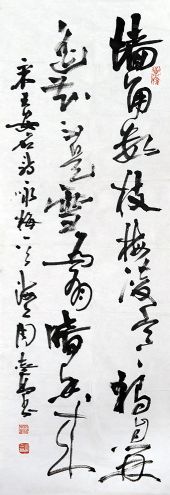 墙角数枝梅凌寒独自开
遥知不是雪为有暗香来
宋王安石诗咏梅一首 周